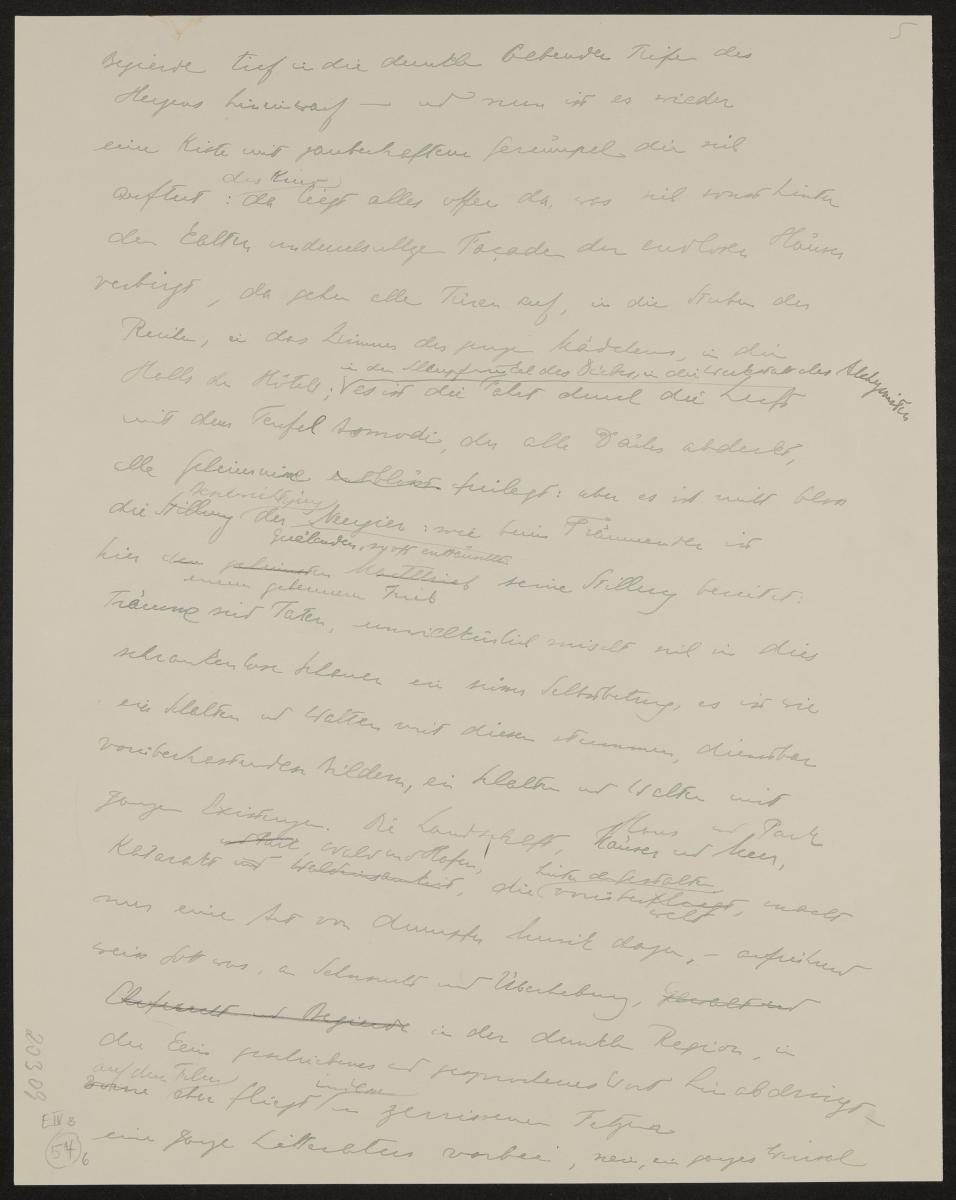 5
Begierde tief in die dunklen bebenden Tiefen des
Herzens hineinwarf — und nun ist es wieder
eine Kiste mit zauberhaftem Gerümpel die sich
des Kinos
auftut : da liegt alles offen da, was sich sonst hinter
den kalten undurchsichtigen Façaden der endlosen Häuser
verbirgt, da gehen alle Türen auf, in die Stuben der
Reichen, in das Zimmer des jungen Mädchens, in die
in den Schlupfwinkel des Diebes, in die Werkstatt des Alchymisten
Halls der Hôtels; es ist die Fahrt durch die Luft
mit dem Teufel Asmodi, der alle Dächer abdeckt,
alle Geheimnisse entblösst freilegt: aber es ist nicht bloss
die Stillung der Neugier : wie beim Träumenden ist
quälenden, so oft enttäuschten
hier dem geheimsten seine Stillung bereitet:
einem geheimen Trieb
Träume sind Taten, unwillkürlich mischt sich in dies
schrankenlose Schauen ein süsser Selbstbetrug, es ist wie
ein Schalten und Walten mit diesen stummen, dienstbar
vorüberhastenden Bildern, ein Schalten und Walten mit
ganzen Existenzen. Die Landschaft, Haus und Park
Häuser und Meer,
und Park, Wald und Hafen,
Katarakt und Waldeinsamkeit, die
hinter den Gestalten
weht
macht
nur eine Art von dumpfer Musik dazu, – aufrührend
weiss Gott was, an Sehnsucht und Überhebung, Gewalt und
und Begierde in der dunklen Region, in
die kein geschriebenes und gesprochenes Wort hinabdringt –
auf dem Film
indessen
aber fliegt in zerrissenen Fetzen
eine ganze Litteratur vorbei, nein, ein ganzes Wirrsal
20309
E IV B
54
6